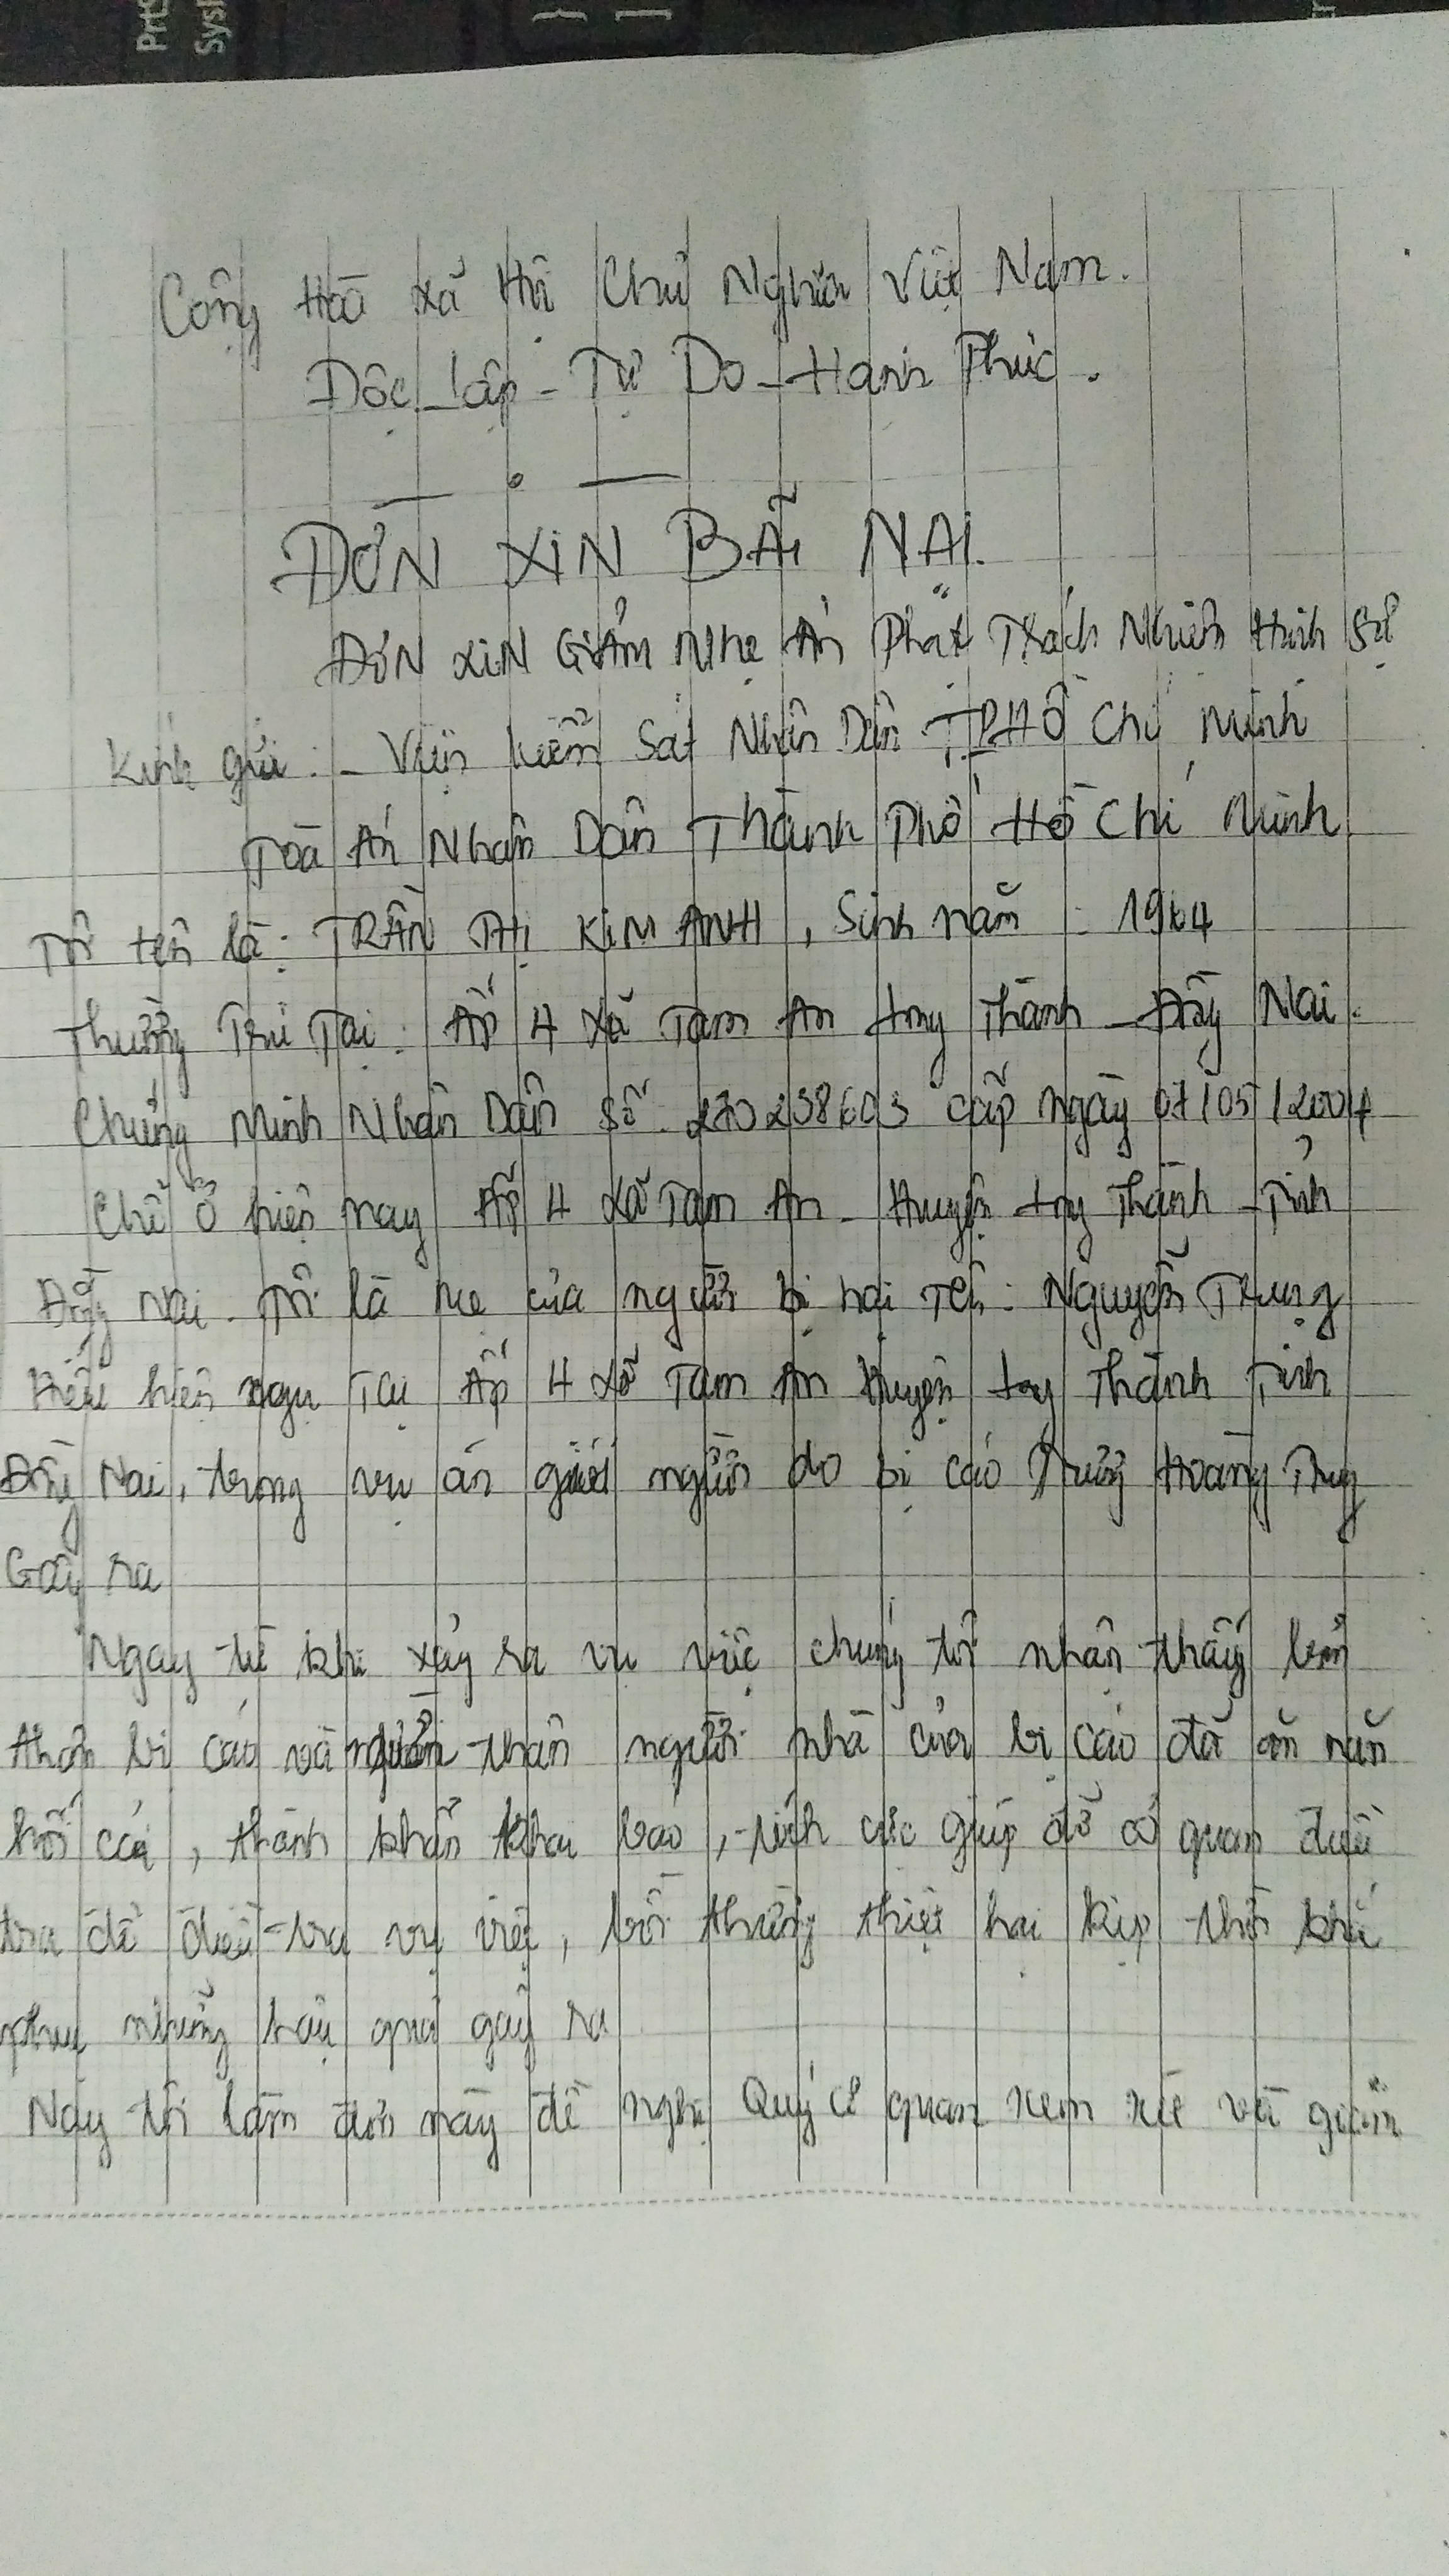 Cộng Hòa Xã Hội Chủ Nghĩa Việt Nam.
Độc lập - Tự Do - Hạnh Phúc.
ĐƠN XIN BÃI NẠI.
ĐƠN XIN GIẢM Nhẹ Án Phạt Trách Nhiệm Hình Sự
Kính gửi: - Viện kiểm Sát Nhân Dân TP HỒ Chí Minh
Tòa Án Nhân Dân Thành Phố Hồ Chí Minh
Tôi tên là: TRẦN THỊ KIM ANH, Sinh năm : 1964
Thường Trú Tại: Ấp 4 Xã Tam An Long Thành - Đồng Nai.
Chứng Minh Nhân Dân Số: 270238603 cấp ngày 07/05/2004
Chỗ ở hiện nay Ấp 4 Xã Tam An - Huyện Long Thành - Tỉnh
Đồng Nai. Tôi là mẹ của người bị hại Tên: Nguyễn Trung
Hiếu hiện ngụ Tại Ấp 4 Xã Tam An Huyện Long Thành Tỉnh
Đồng Nai, trong vụ án giết người do bị cáo Trương Hoàng
Gây ra
Ngay từ khi xảy ra vụ việc chúng tôi nhận thấy bản
thân bị cáo và thân người nhà của bị cáo đã ăn năn
hối cải, thành khẩn khai báo, tích cực giúp đỡ cơ quan điều
tra để điều tra vụ việc, bồi thường thiệt hại kịp thời khắc
phục những hậu quả gây ra
Nay tôi làm đơn này đề nghị Quý cơ quan xem xét và giảm